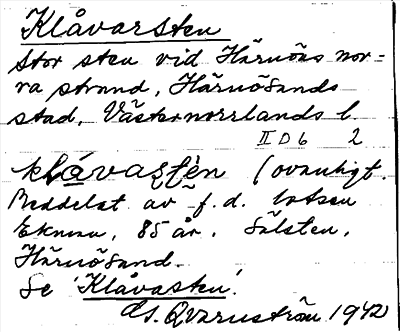 Klåvarsten
Stor sten vid Härnöns nor-
ra strand, Härnösands
stad, Västernorrlands l.
II D 6 2
klåvastèn (ovanligt.
Meddelat av f.d. lotsen
Ekman, 85 år, Sälsten,
Härnösand.
Se 'Klåvasten'.
G. Qvarnström 1942